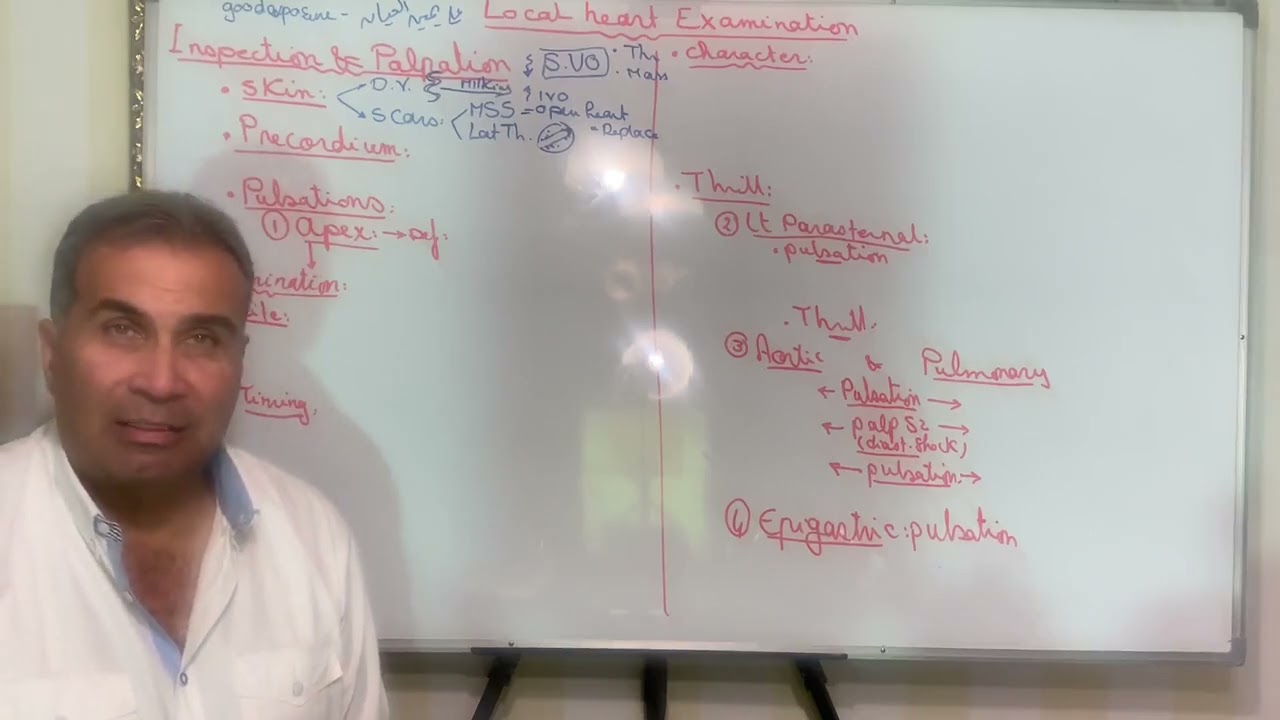 good exposure -
Local heart Examination
Inspection & Palpation
S.VO
• Th
• Mass
• Skin:
D.V.
Milking
IVO
Scars:
MSS = open heart
Lat Th.
= Replace
• Precordium:
• Pulsations:
① apex: → def:
mination:
ile:
Timing:
• character:
• Thrill:
② Lt Parasternal:
• pulsation
• Thrill:
③ Aortic & Pulmonary
← Pulsation →
← palp S2 →
(diast. shock)
← pulsation →
④ Epigastric: pulsation